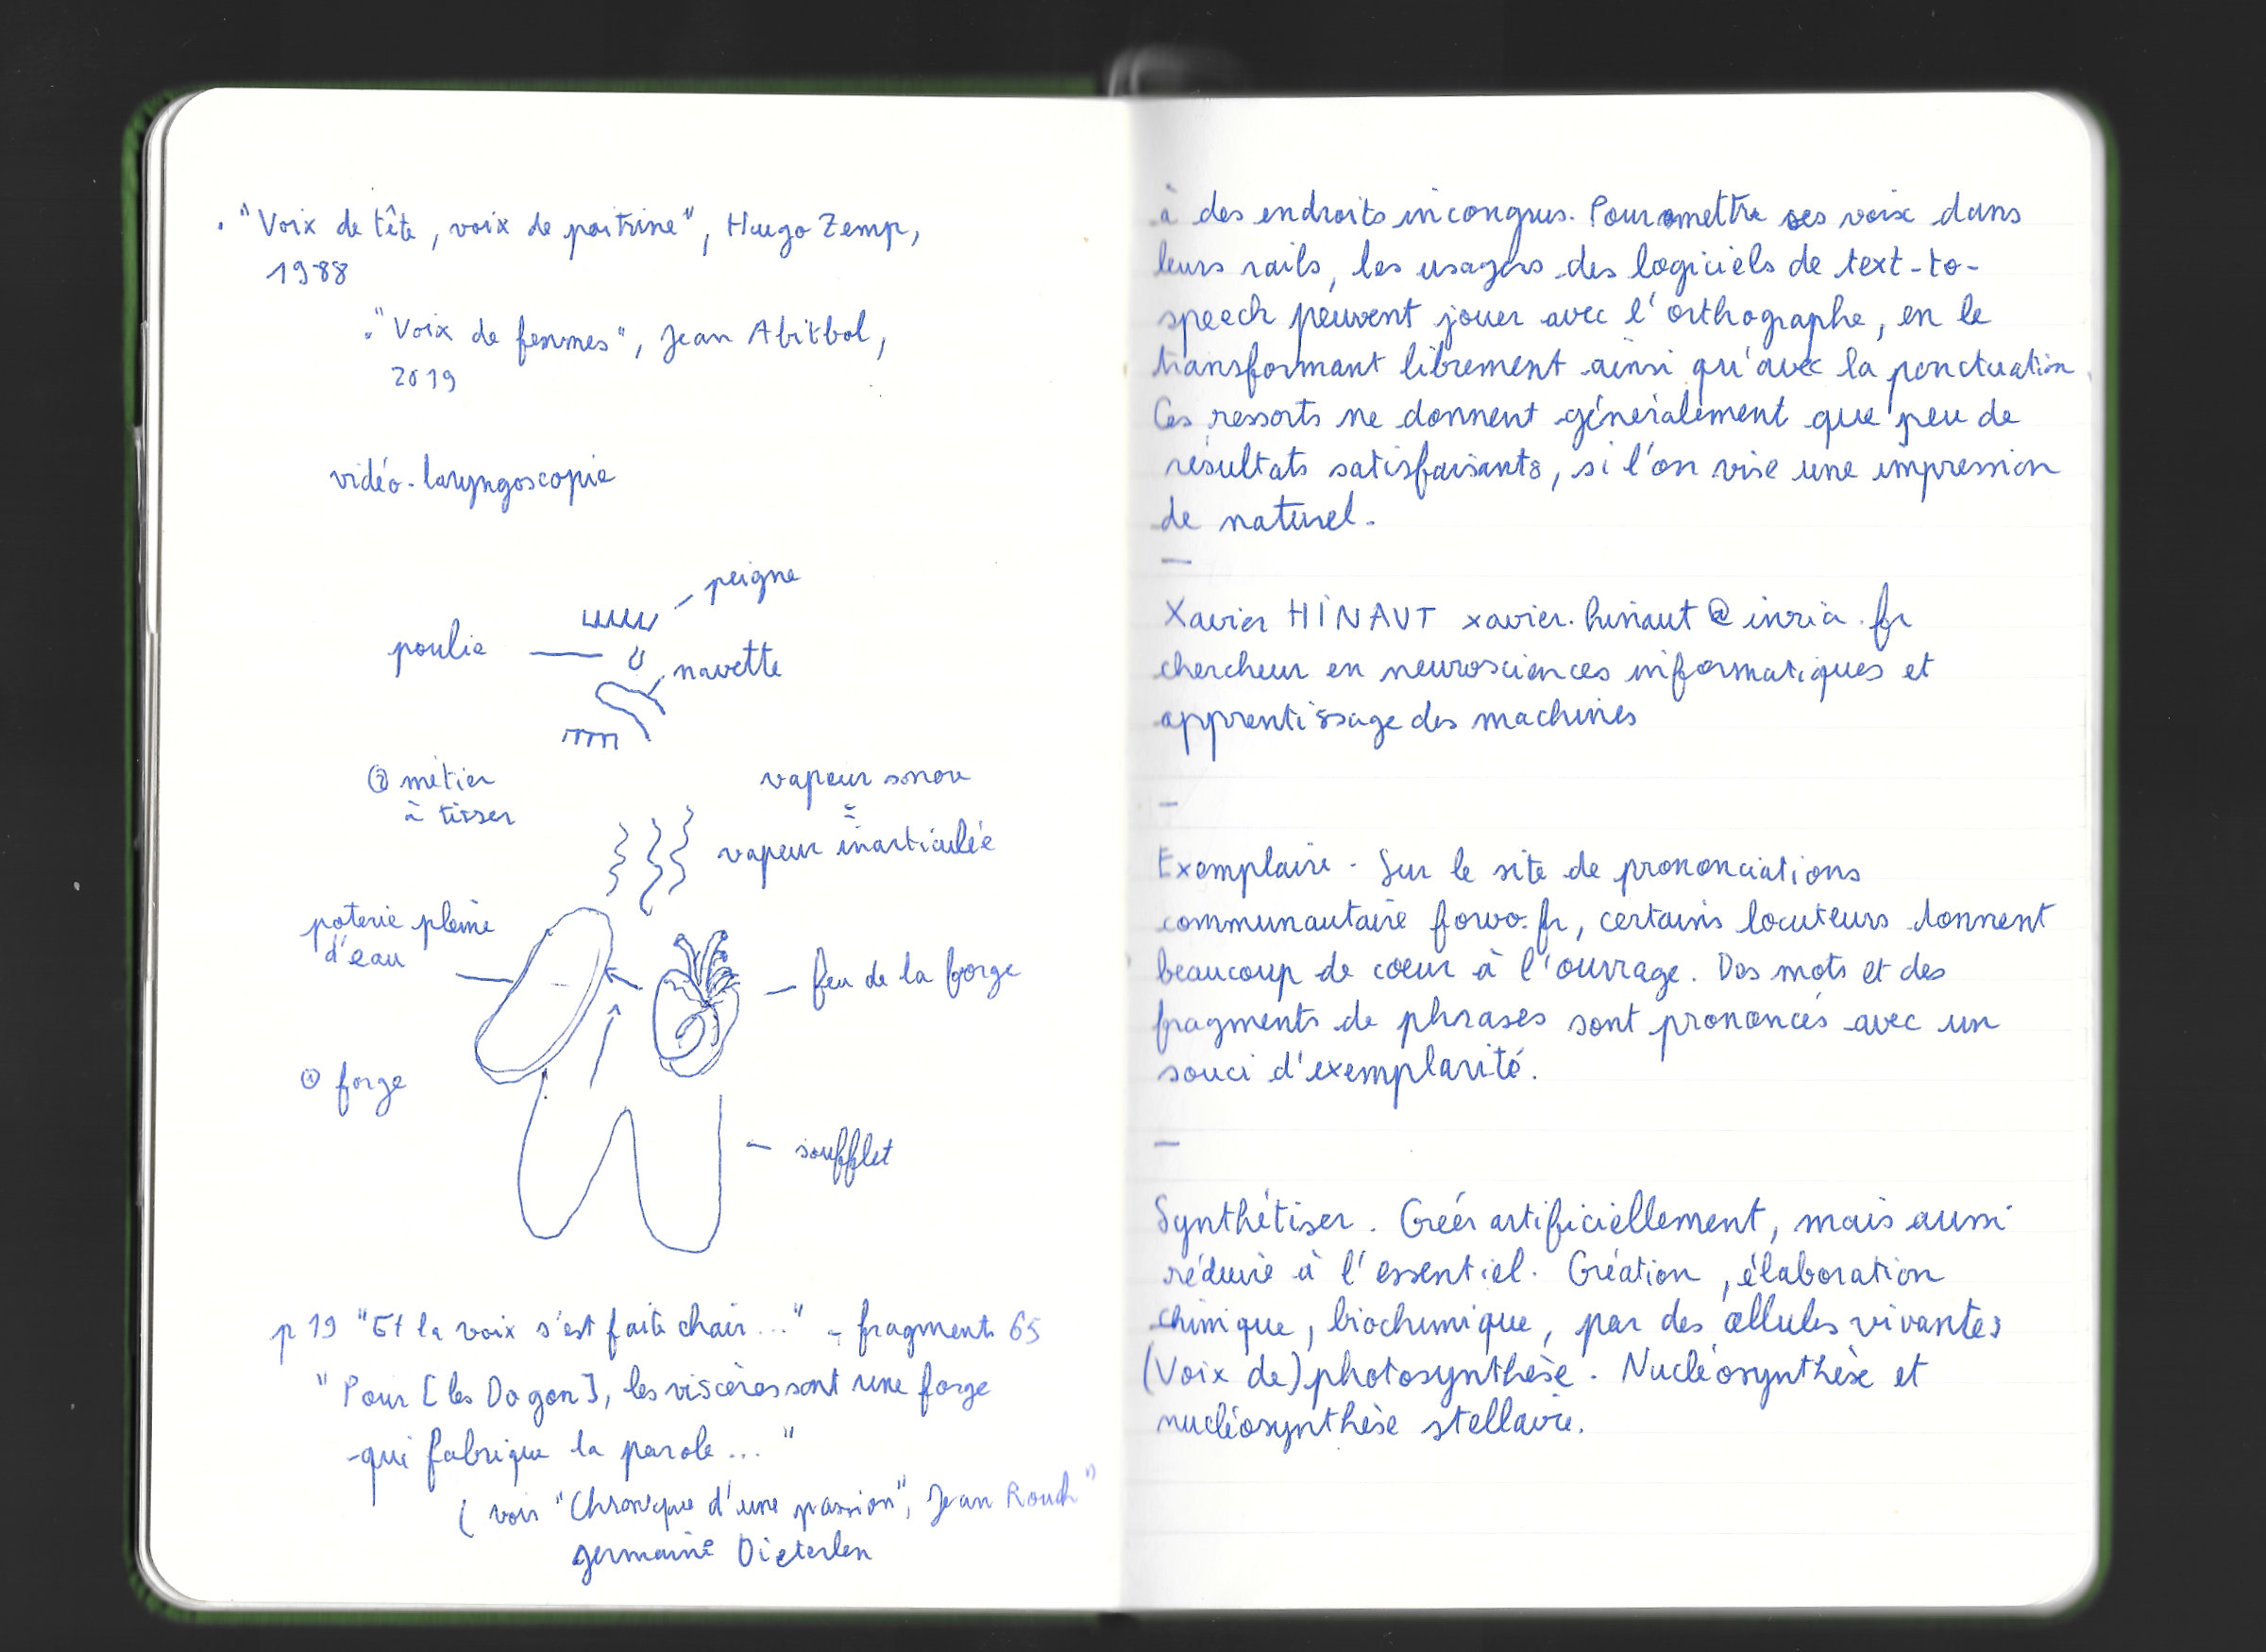 . "Voix de tête, voix de poitrine", Hugo Zemp,
1988
. "Voix de femmes", Jean Abitbol,
2019
vidéo-laryngoscopie
peigne
poulie
navette
② métier
à tisser
vapeur sonore
=
vapeur inarticulée
poterie pleine
d'eau
feu de la forge
① forge
soufflet
p 19 "Et la voix s'est faite chair..." - fragment 65
"Pour [les Dogon], les viscères sont une forge
qui fabrique la parole..."
(voir "Chronique d'une passion", Jean Rouch"
germaine Dieterlen
à des endroits incongrus. Pour omettre ses voix dans
leurs rails, les usagers des logiciels de text-to-
speech peuvent jouer avec l'orthographe, en le
transformant librement ainsi qu'avec la ponctuation.
Ces ressorts ne donnent généralement que peu de
résultats satisfaisants, si l'on vise une impression
de naturel.
—
Xavier HINAUT xavier.hinaut@inria.fr
chercheur en neurosciences informatiques et
apprentissage des machines
—
Exemplaire. Sur le site de prononciations
communautaire forvo.fr, certains locuteurs donnent
beaucoup de coeur à l'ouvrage. Des mots et des
fragments de phrases sont prononcés avec un
souci d'exemplarité.
—
Synthétiser. Créer artificiellement, mais aussi
réduire à l'essentiel. Création, élaboration
chimique, biochimique, par des cellules vivantes
(Voix de) photosynthèse. Nucléosynthèse et
nucléosynthèse stellaire.